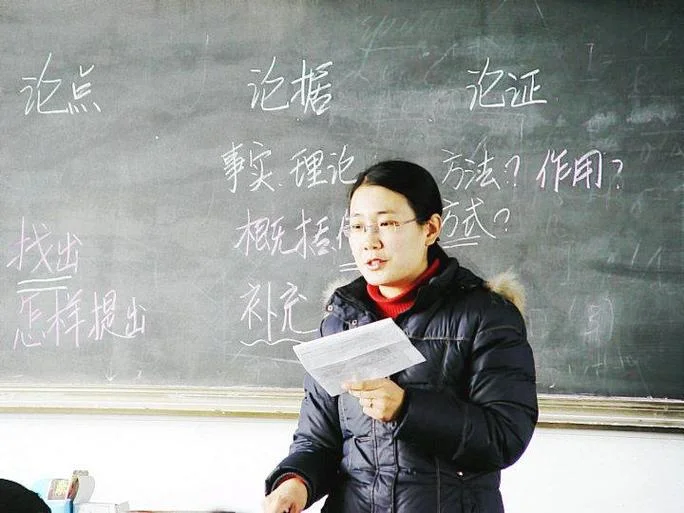 论点 论据 论证
事实、理论 方法？作用？
概括 方式？
找出
怎样提出 补充